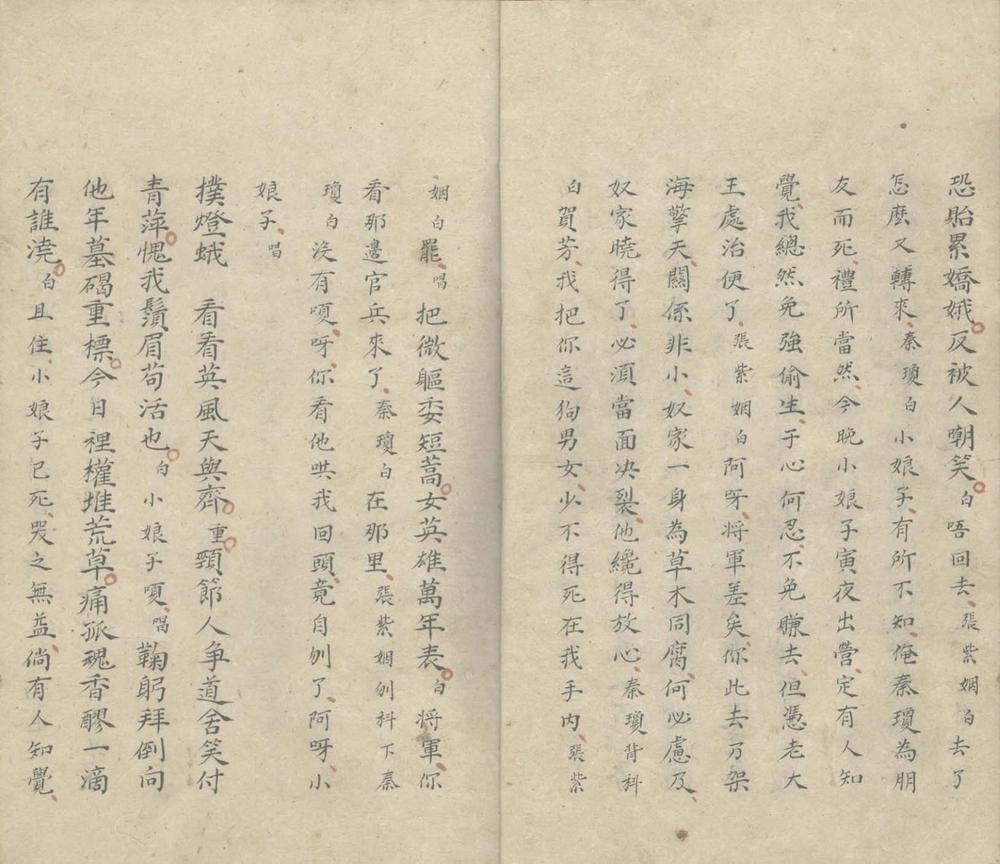 恐貽累嬌娥反被人嘲笑白唔回去張紫姻白去了
怎麽又轉來秦瓊白小娘子有所不知俺秦瓊為朋
友而死禮所當然今晚小娘子寅夜出營定有人知
覺我總然免強偷生于心何忍不免賺去但憑老大
王處治便了張紫姻白阿呀將軍差矣你此去乃架
海擎天關係非小奴家一身為草木同腐何必慮及
奴家曉得了必須當面决裂他纔得放心秦瓊背科
白賀芳我把你這狗男女少不得死在我手内張紫
姻白罷唱把微軀委短蒿女英雄萬年表白將軍你
看那邊官兵來了秦瓊白在那里張紫姻刎科下秦
瓊白沒有嗄呀你看他哄我回頭竟自刎了阿呀小
娘子唱
撲燈蛾　看看英風天與齊重頸節人争道含笑付
青萍愧我鬚眉苟活也白小娘子嗄唱鞠躬拜倒向
他年墓碣重標今日裡權堆荒草痛孤魂香醪一滴
有誰澆白且住小娘子已死哭之無益倘有人知覺